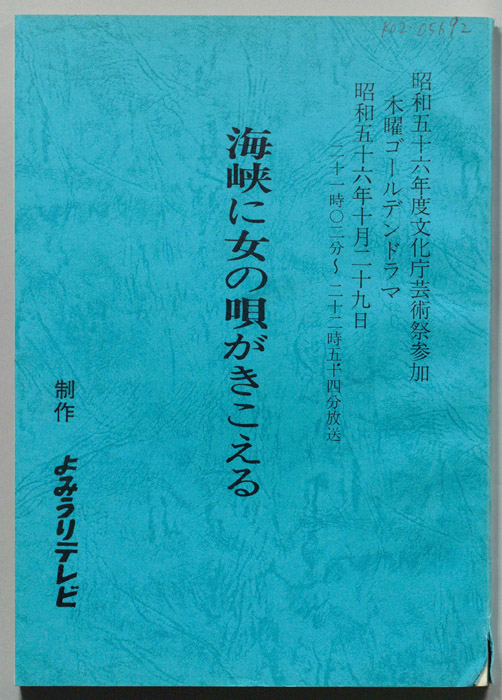 K02-05692
昭和五十六年度文化庁芸術祭参加
木曜ゴールデンドラマ
昭和五十六年十月二十九日
二十一時〇二分〜二十二時五十四分放送
海峡に女の唄がきこえる
制作
よみうりテレビ